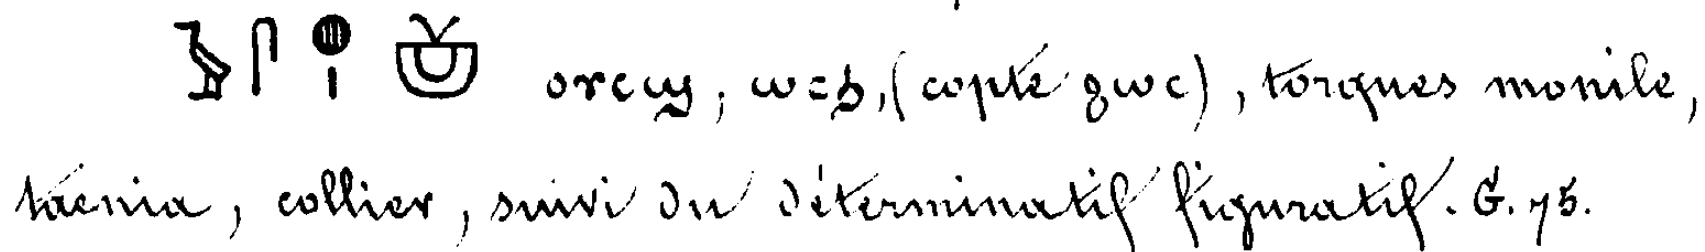 ⲟⲩⲥϣ, ⲱⲥϧ, (copte ϩⲱⲥ), torques monile,
taenia, collier, suivi du déterminatif figuratif. G. 75.